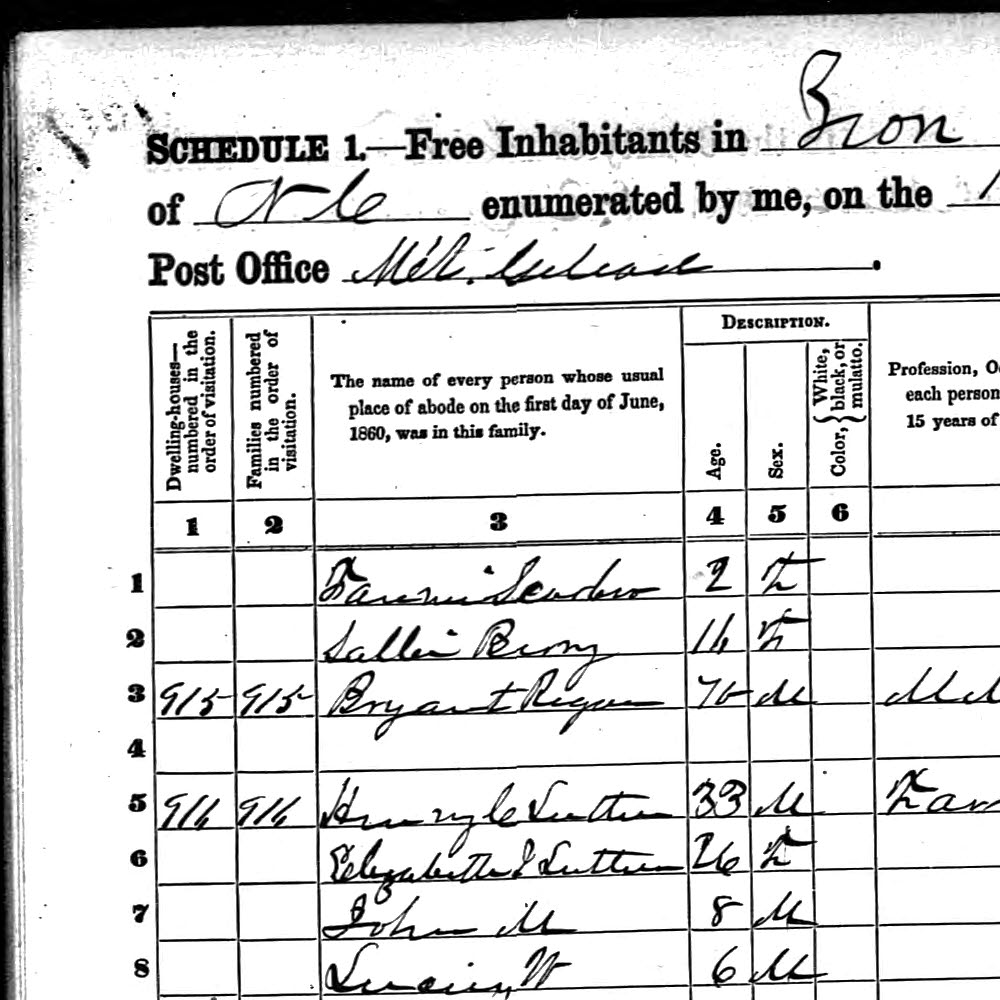 SCHEDULE 1.—Free Inhabitants in Zion
of N C enumerated by me, on the 1
Post Office Mt. Gilead.
Dwelling-houses—numbered in the order of visitation.
Families numbered in the order of visitation.
The name of every person whose usual
place of abode on the first day of June,
1860, was in this family.
DESCRIPTION.
Age.
Sex.
Color, { White, black, or mulatto.
Profession, O
each person
15 years of
1 2 3 4 5 6
1 Fannie 2 F
2 Sallie 16 F
3 915 915 Bryant M
4
5 916 916 Henry C 33 M Far
6 Elizabeth 26 F
7 John M 8 M
8 W 6 M